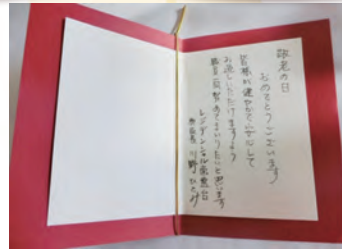 敬老の日
おめでとうございます
皆様が健やかで安心して
お過しいただけますよう
職員一同努めてまいりたいと思います
レジデンシャル常盤台
川野 ひとみ